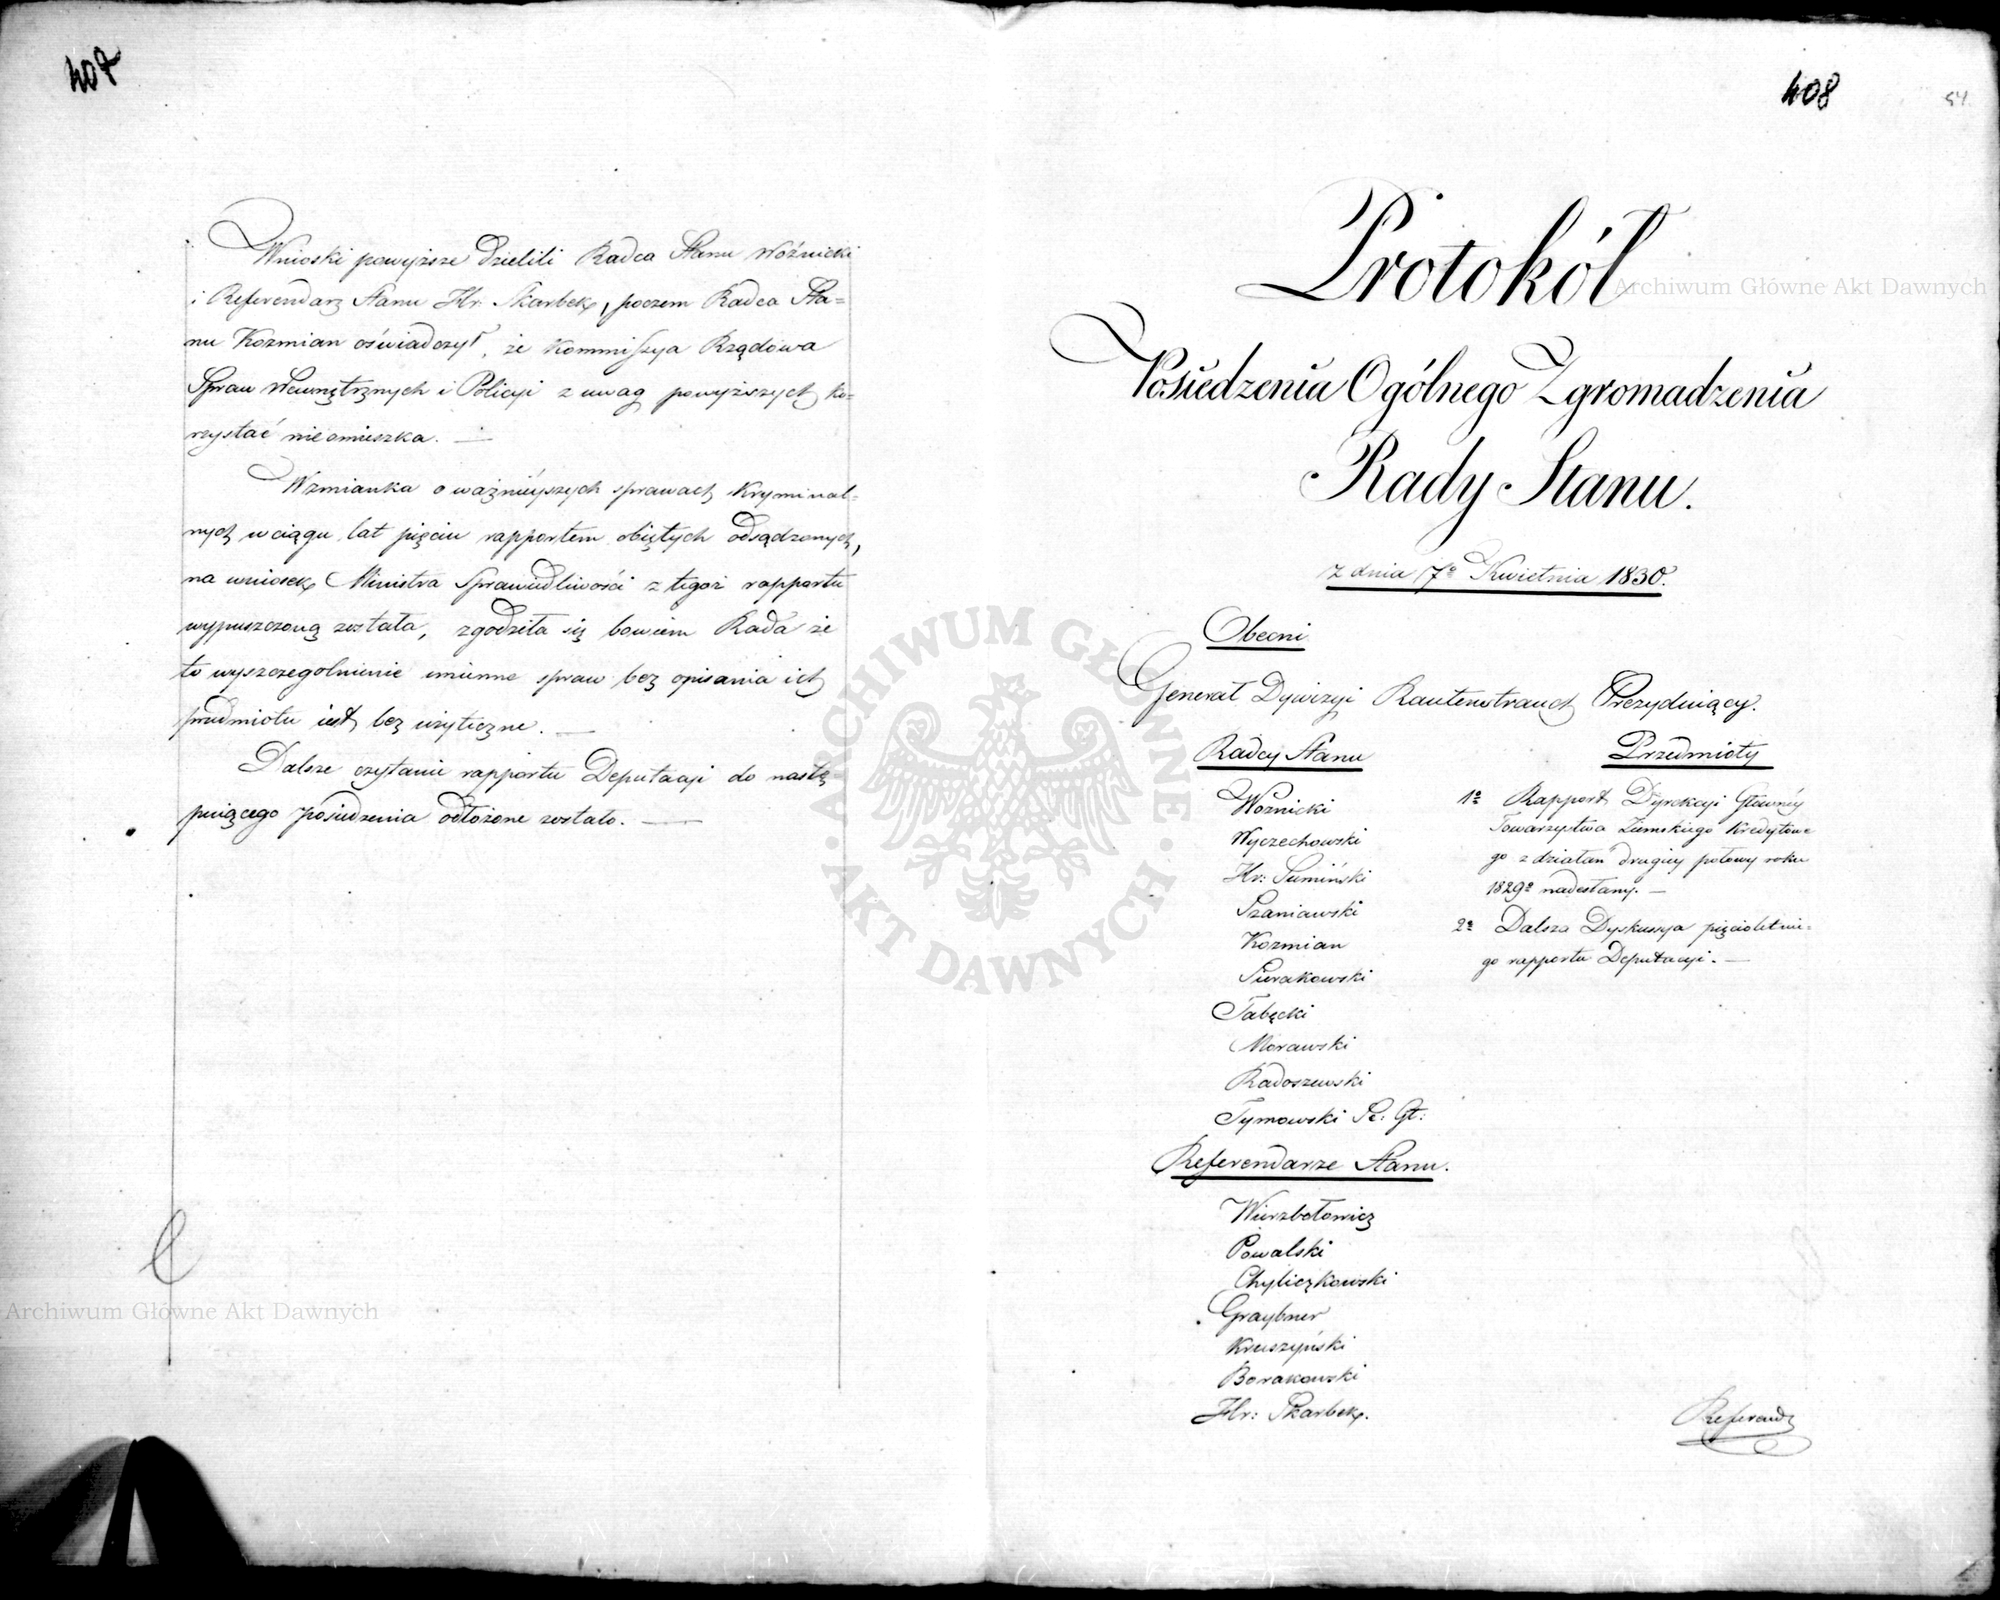 407
Wnioski powyższe dzielili Radca Stanu Woźnicki
i Referendarz Stanu Hr. Skarbek, poczem Radca Sta=
nu Kozmian oświadczył, że Kommissya Rządowa
Spraw Wewnętrznych i Policyi z uwag powyższych ko=
rzystać nieomieszka. —
Wzmianka o ważnieyszych sprawach Kryminal=
nych w ciągu lat pięciu rapportem obiętych odsądzonych,
na wniosek Ministra Sprawiedliwości z tegoż rapportu
wypuszczoną została, zgodziła się bowiem Rada że
to wyszczegolnienie imienne spraw bez opisania ich
przedmiotu iest bez użyteczne. —
Dalsze czytanie rapportu Deputacyi do nastę
puiącego posiedzenia odłożone zostało. —
408
54.
Protokół
Posiedzenia Ogólnego Zgromadzenia
Rady Stanu.
z dnia 7º Kwietnia 1830.
Obecni
Generał Dywizyi Rautenstrauch Prezyduiący.
Radcy Stanu
Woźnicki
Wyczechowski
Hr: Sumiński
Szaniawski
Kozmian
Sierakowski
Tabęcki
Morawski
Radoszewski
Tymowski Se: Gł:
Referendarze Stanu.
Wierzbołowicz
Powalski
Chyliczkowski
Graybner
Kruszyński
Borakowski
Hr: Skarbek.
Przedmioty
1º Rapport Dyrekcyi Główney
Towarzystwa Ziemskiego Kredytowe
go z działań drugiey połowy roku
1829º nadesłany. —
2º Dalsza Dyskussya pięcioletnie=
go rapportu Deputacyi. —
Referendz
Archiwum Główne Akt Dawnych
Archiwum Główne Akt Dawnych
· ARCHIWUM GŁÓWNE ·
· AKT DAWNYCH ·